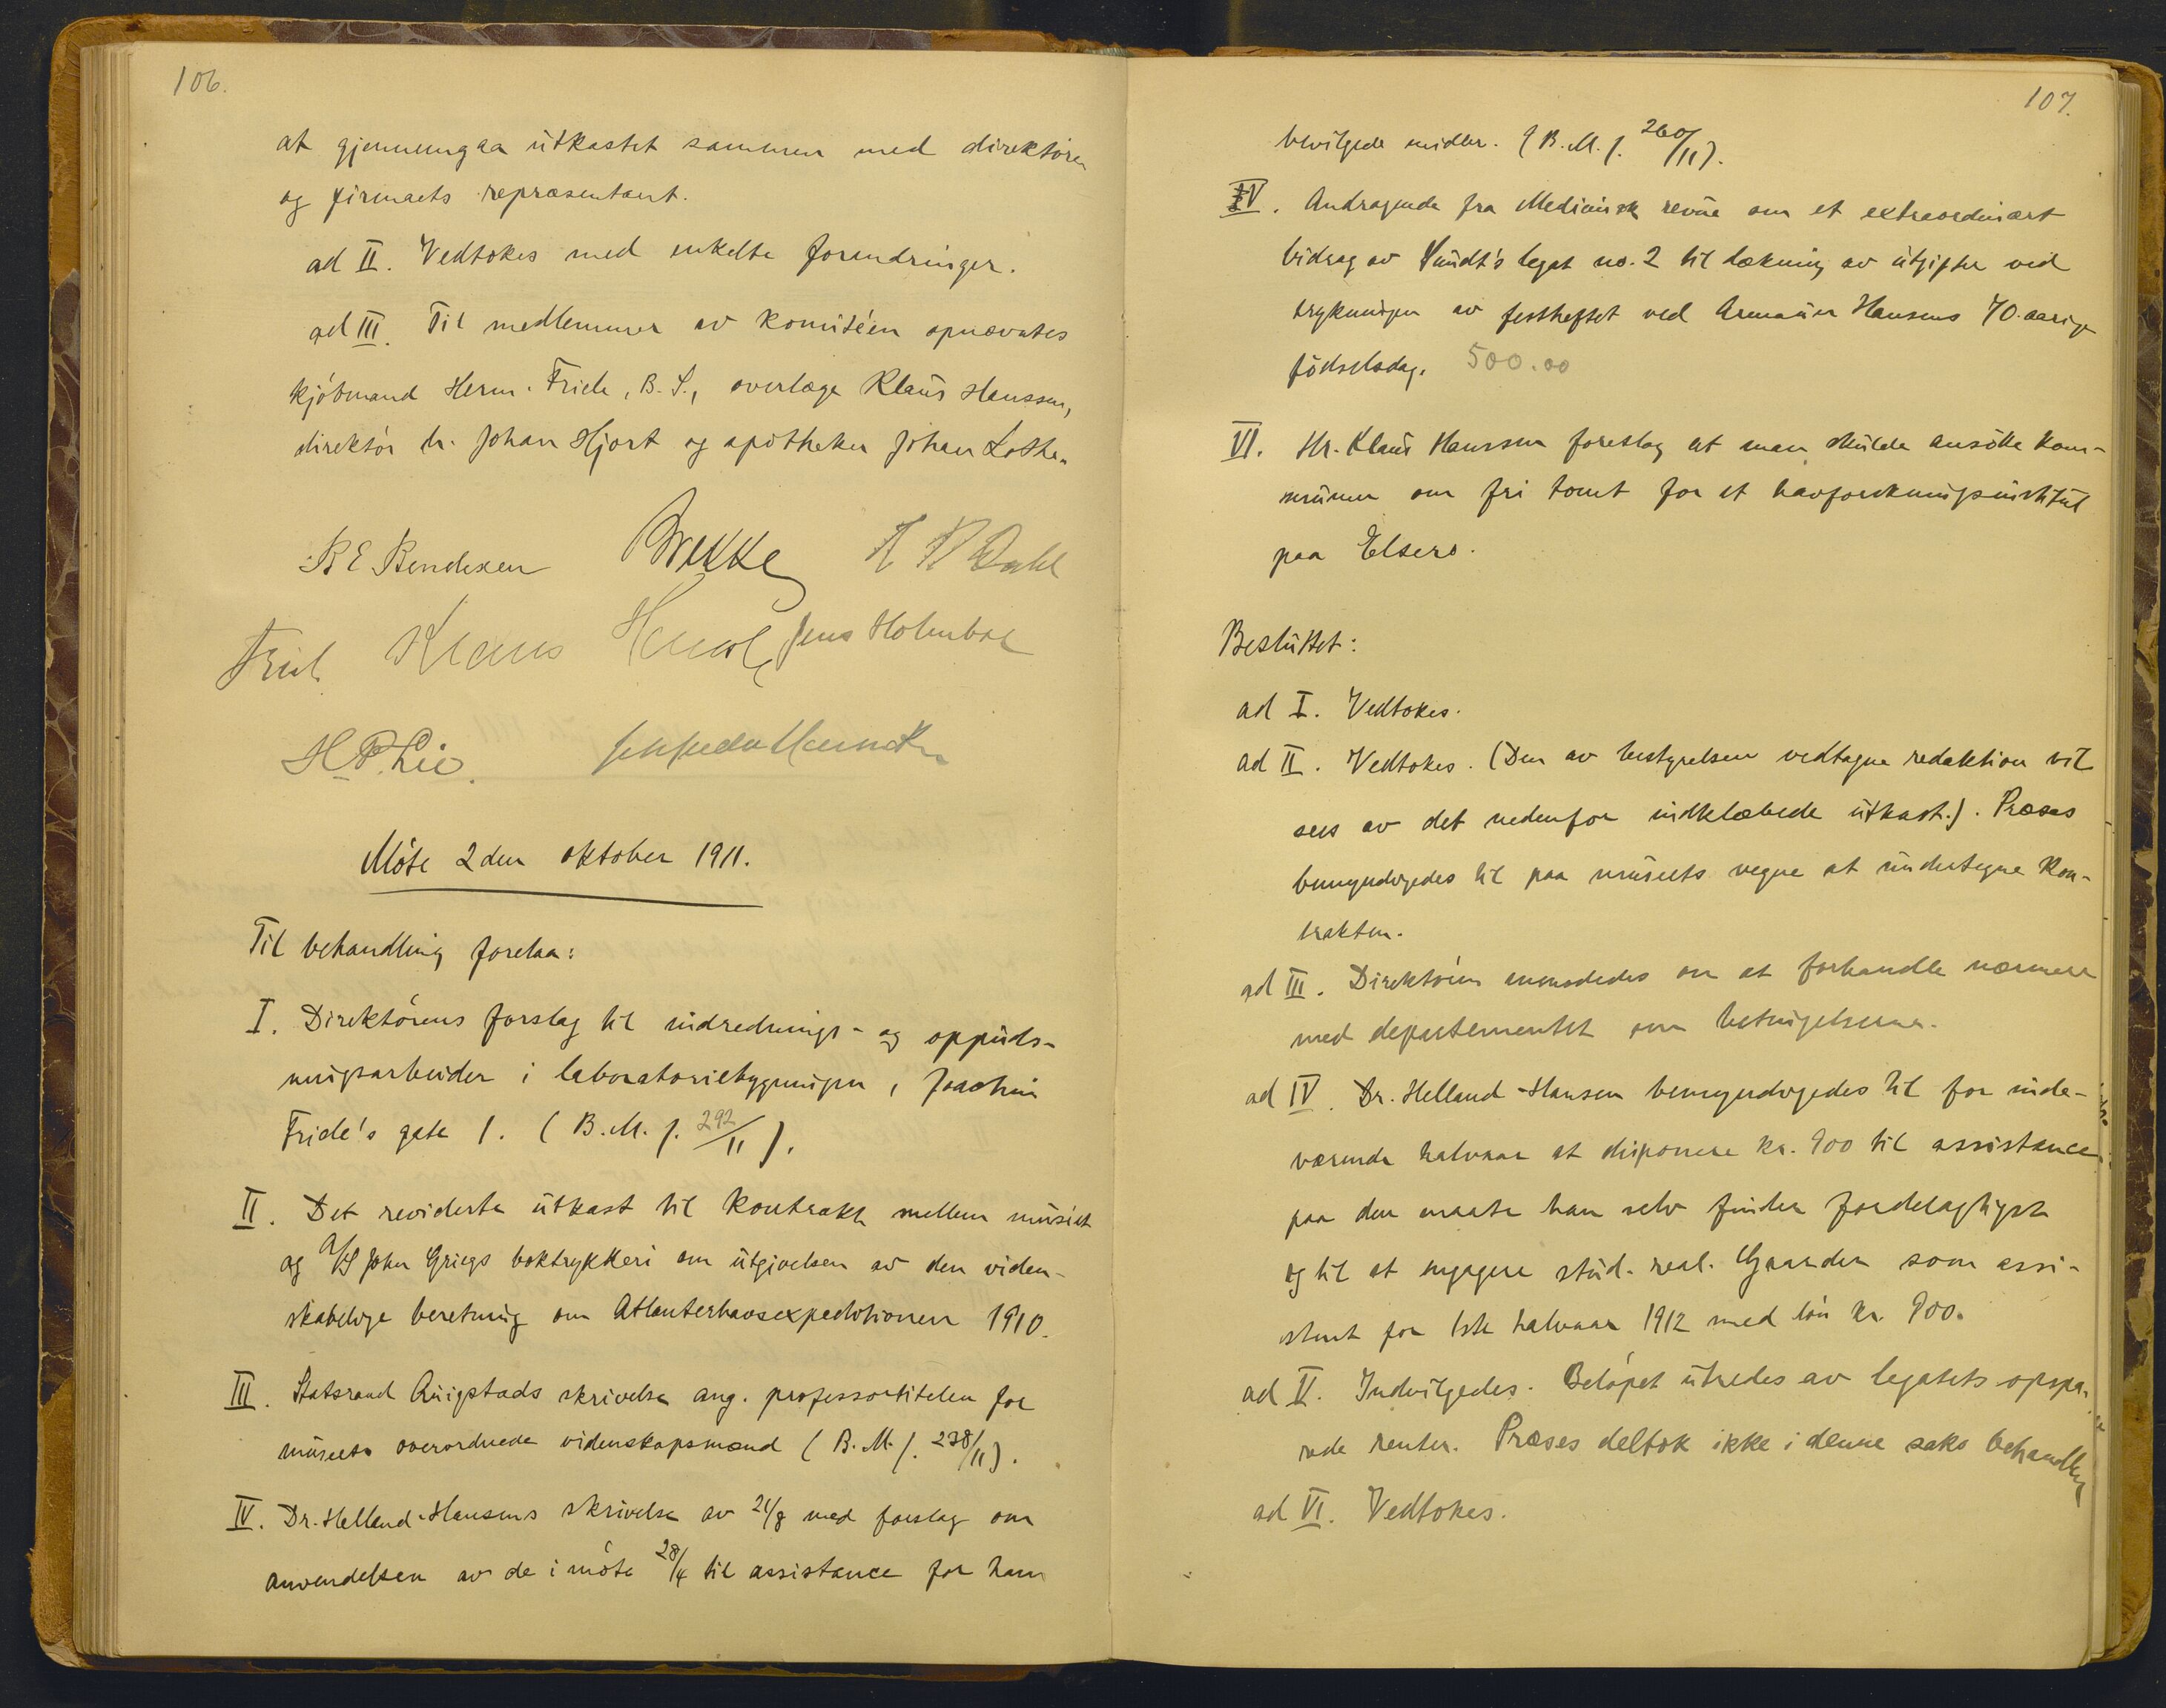 106.
at gjennemgaa utkastet sammen med direktøren
og firmaets repræsentant.
ad II. Vedtokes med enkelte forandringer.
ad III. Til medlemmer av komitéen opnævntes
kjöbmand Herm. Friele, B. S., overlæge Klaus Hanssen,
direktör dr. Johan Hjort og apotheker Johan Lothe.
B E Bendixen Brekke
Dahl
Friele Klaus Hanssen Jens Holmboe
H. P. Lie
Möte 2den oktober 1911.
Til behandling forelaa:
I. Direktörens forslag til indrednings- og oppuds-
ningsarbeider i laboratoriebygningen, Joachim
Friele's gate 1. (B.M. j. 292/11).
II. Det reviderte utkast til kontrakt mellem museet
og A/S John Griegs boktrykkeri om utgivelsen av den viden-
skabelige beretning om Atlanterhavsexpeditionen 1910.
III. Statsraad Qvigstads skrivelse ang. professortitelen for
museets overordnede videnskapsmænd (B.M. j. 238/11).
IV. Dr. Helland-Hansens skrivelse av 21/8 med forslag om
anvendelsen av de i möte 28/4 til assistance for ham
107.
bevilgede midler. (B.M. j. 260/11).
V. Andragende fra Medicinsk revue om et extraordinært
bidrag av Sundt's legat no. 2 til dækning av utgifter ved
trykningen av festheftet ved Armauer Hansens 70-aarige
födselsdag. 500.00
VI. Hr. Klaus Hanssen foreslog at man skulde ansöke kom-
munen om fri tomt for et havforskningsinstitut
paa Elsero.
Besluttet:
ad I. Vedtokes.
ad II. Vedtokes. (Den av bestyrelsen vedtagne redaktion vil
sees av det nedenfor indklæbede utkast.). Præses
bemyndigedes til paa museets vegne at undertegne kon-
trakten.
ad III. Direktören anmodedes om at forhandle nærmere
med departementet om betingelserne.
ad IV. Dr. Helland-Hansen bemyndigedes til for inde-
værende halvaar at disponere kr. 900 til assistance
paa den maate han selv finder fordelagtigst
og til at engagere stud. real. Gaarder som assi-
stent for 1ste halvaar 1912 med lön kr. 900.
ad V. Indvilgedes. Belöpet utredes av legatets opspa-
rede renter. Præses deltok ikke i denne saks behandling
ad VI. Vedtokes.